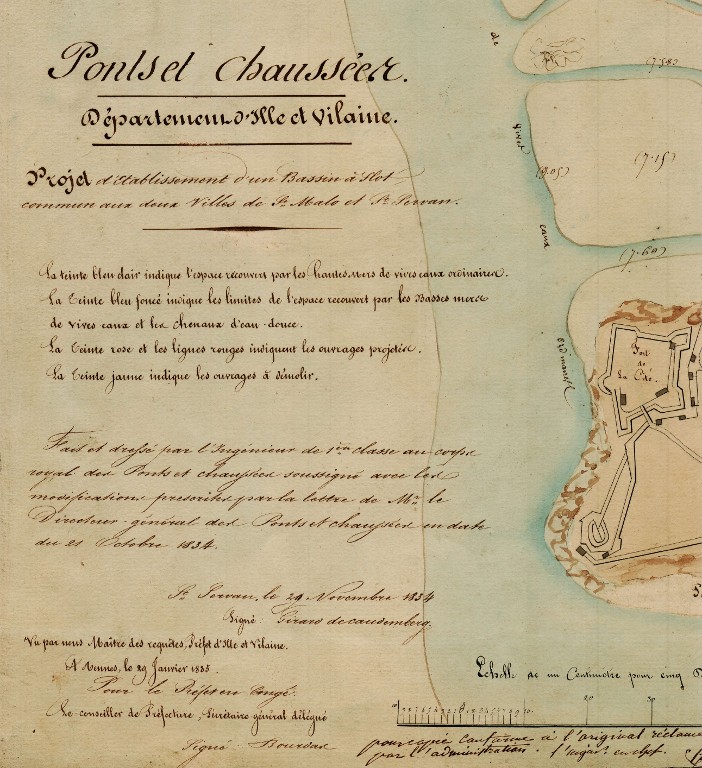 Ponts et Chaussées.
Département d'Ille et Vilaine.
Projet d'établissement d'un Bassin à Flot
commun aux deux Villes de St. Malo et St. Servan.
La teinte bleu clair indique l'espace recouvert par les hautes mers de vives eaux ordinaires.
La Teinte bleu foncé indique les limites de l'espace recouvert par les Basses mers
de vives eaux et les chenaux d'eau-douce.
La Teinte rose et les lignes rouges indiquent les ouvrages projetés.
La Teinte jaune indique les ouvrages à démolir.
Fait et dressé par l'Ingénieur de 1ère classe au corps
royal des Ponts et chaussées soussigné avec les
modifications prescrites par la lettre de Mr. le
Directeur-général des Ponts et chaussées en date
du 21 Octobre 1834.
St. Servan, le 29 Novembre 1834
Signé: Girard de caudemberg.
Vu par nous Maître des requêtes, Préfet d'Ille et Vilaine.
A Rennes, le 29 Janvier 1835.
Pour le Préfet en Congé.
Le conseiller de Préfecture, Secrétaire général délégué
Signé
de
vives
eaux
ordinaires
(7.38)
(7.15)
(9.05)
(7.60)
Fort
de
La Cité.
Echelle de un Centimètre pour cinq
10 9 8 7 6 5 4 3 2 1 0
20
30
pour copie conforme à l'original réclamé
par l'administration. l'Ingr. en chef.